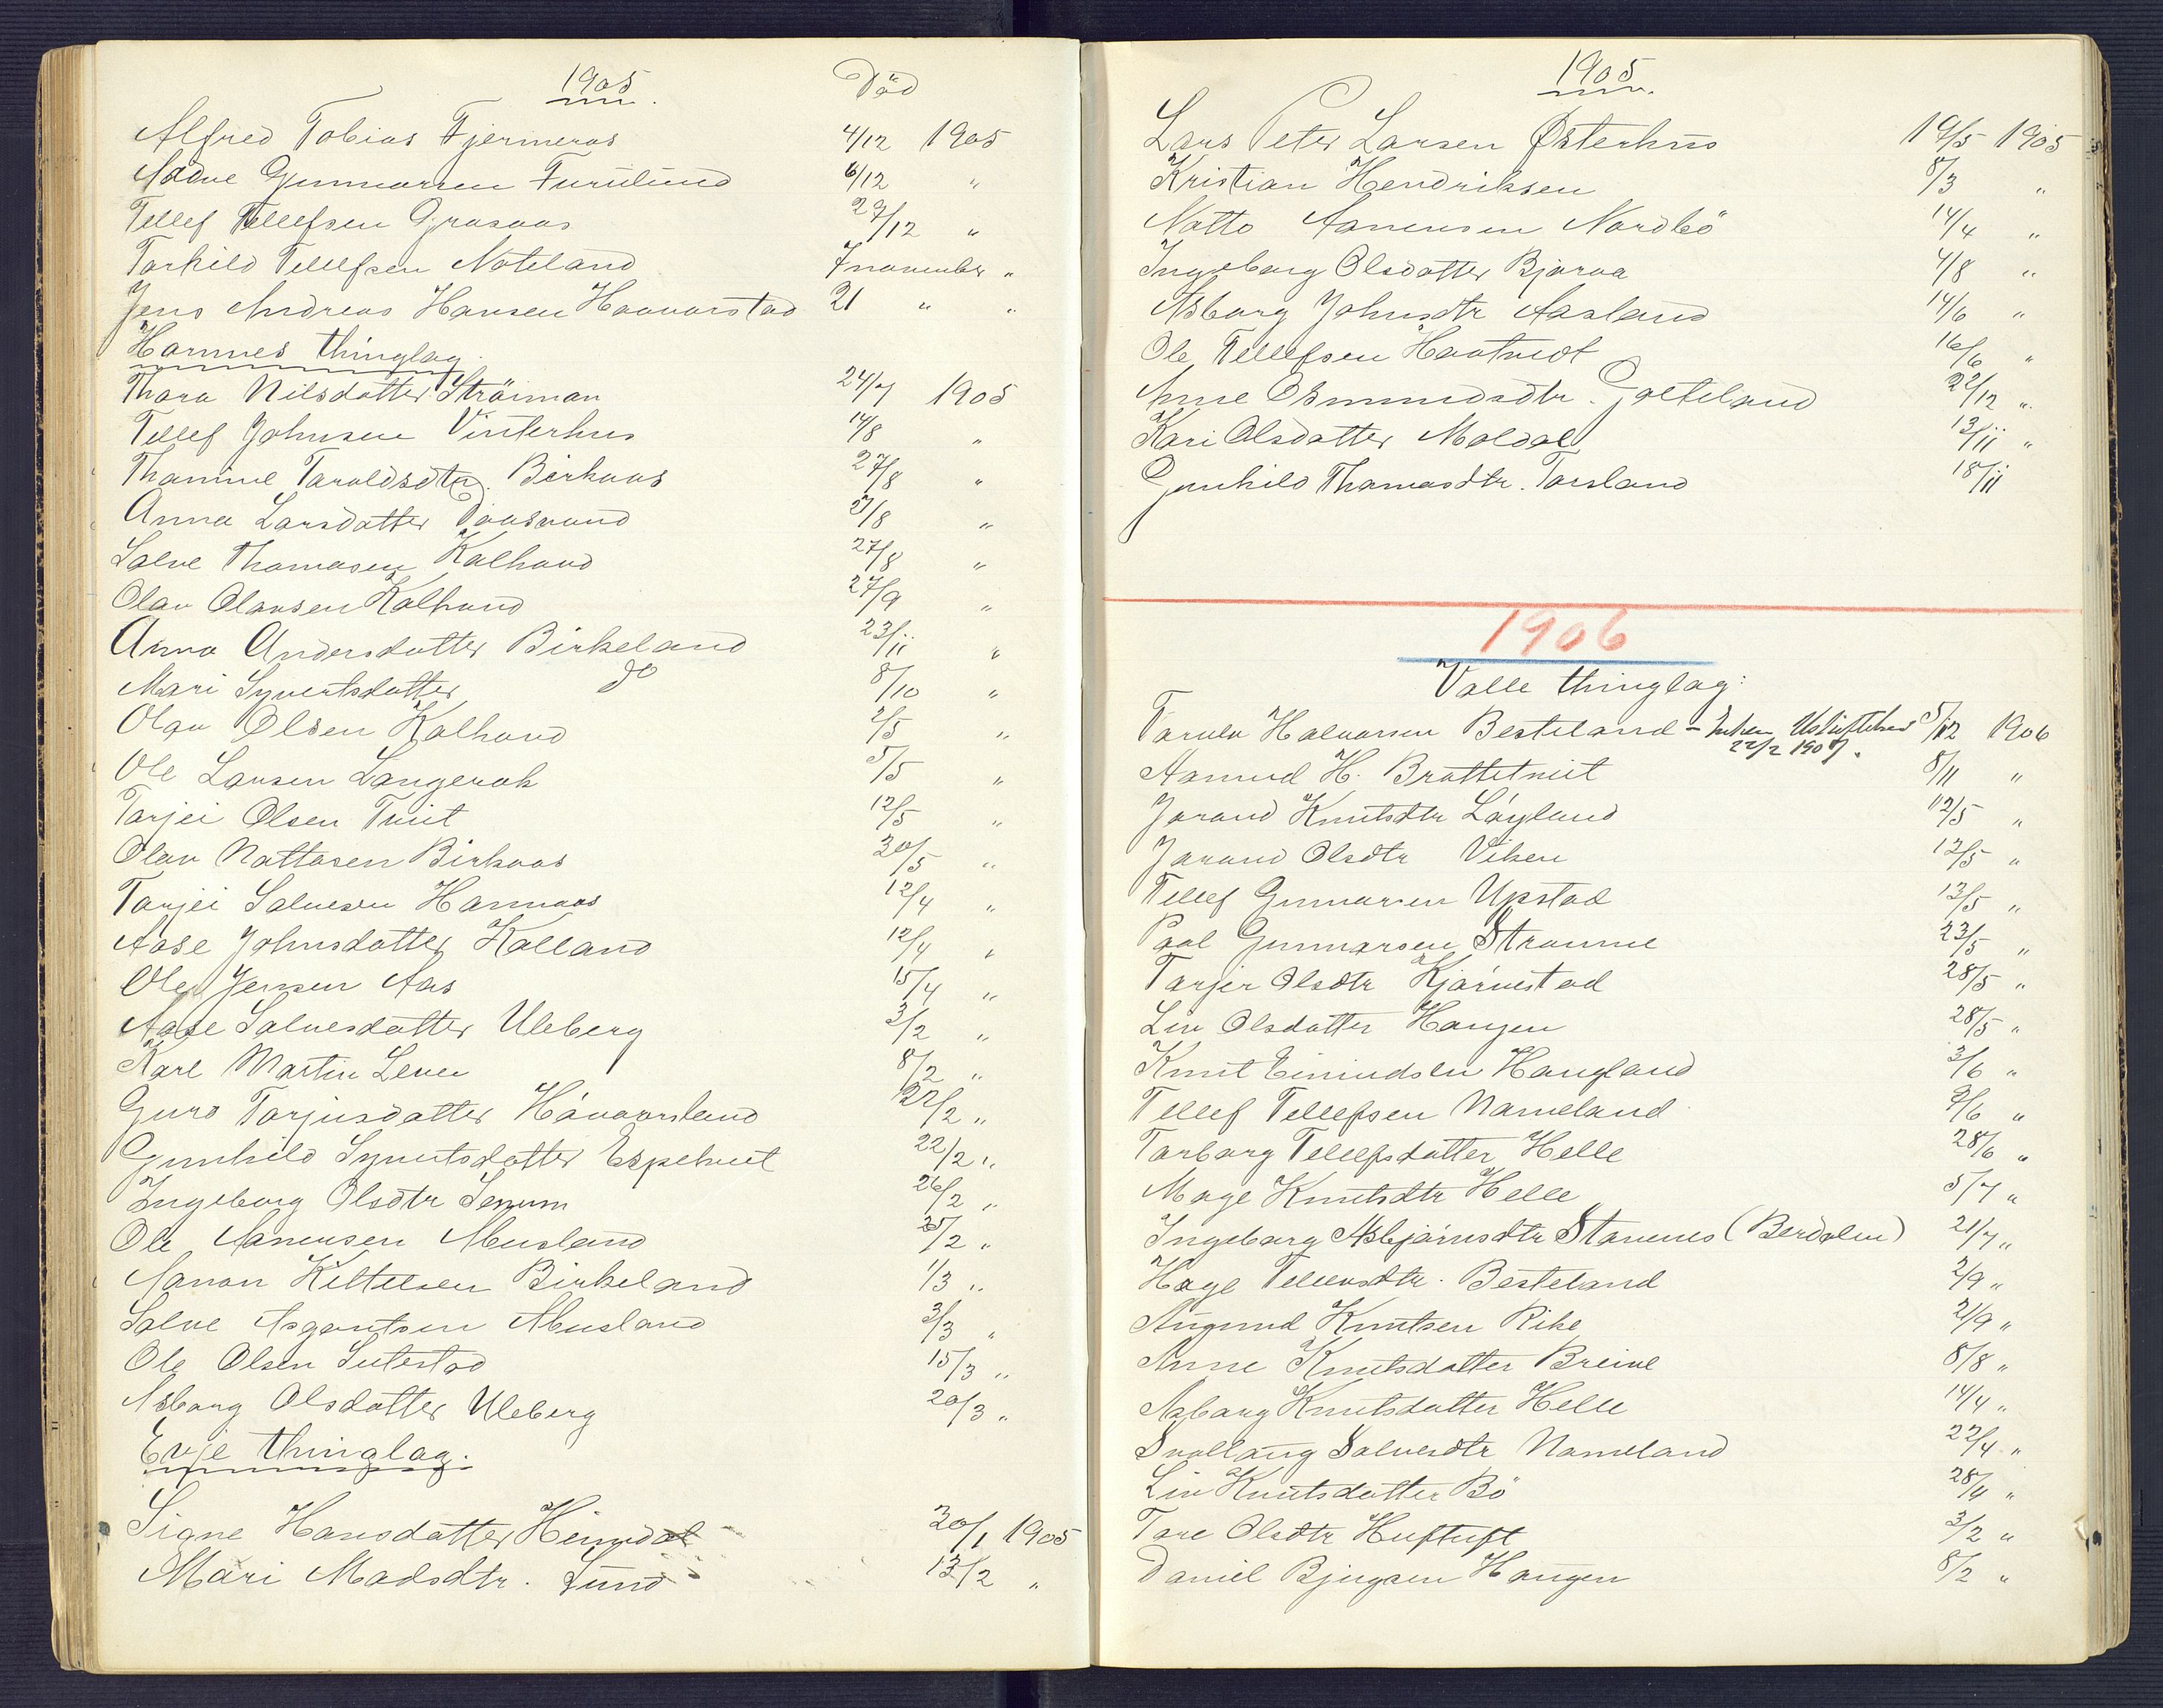 1905
Död
Alfred Tobias Fjermeros 4/12 1905
Addne Gunnarsen Furulund 6/12 "
Tellef Tellefsen Grosaas 27/12 "
Torkild Tellefsen Noteland 7 november "
Jens Andreas Hansen Haavorstad 21 " "
Hornnes thinglag.
Thora Nilsdatter Ströiman 24/7 1905
Tellef Johnsen Vinterhus 14/8 "
Thomine Taroldsdtr. Birkaas 27/8 "
Anna Larsdatter 27/8 "
Salve Thomasen Kalhovd 27/8 "
Olav Olavsen Kalhovd 27/9 "
Anna Andersdatter Birkeland 23/11 "
Mari Syvertsdatter do 8/10 "
Olav Olsen Kalhovd 2/5 "
Ole Larsen Langerak 5/5 "
Tarjei Olsen Tveit 12/5 "
Olav Nattosen Birkaas 30/5 "
Tarjei Salvesen Hannaas 12/4 "
Aase Johnsdatter Kalland 12/4 "
Ole Jensen Aas 15/4 "
Aase Salvesdatter Uleberg 3/2 "
Karl Martin Leven 8/2 "
Guro Torjusdatter Håvorsland 22/2 "
Gunhild Syvertsdatter Espetveit 22/2 "
Ingeborg Olsdtr Senum 26/2 "
Ole Aanensen Abusland 25/2 "
Aanon Kittelsen Birkeland 1/3 "
Salve Asgautsen Abusland 3/3 "
Ole Olsen Sutestad 15/3 "
Asborg Olsdatter Uleberg 20/3 "
Evje thinglag.
Signe Hansdatter Heimdal 30/1 1905
Mari Madsdtr. Lund 13/2 "
1905
Lars Peter Larsen Østerhus 19/5 1905
Kristian Hendriksen 8/3 "
Natto Aanensen Nordbö 14/4 "
Ingeborg Olsdatter Bjorva 4/8 "
Asborg Johnsdtr Aasland 14/6 "
Ole Tellefsen Hovtvedt 16/6 "
Anne Osmundsdtr. Golteland 22/12 "
Kari Olsdatter Moldal 13/11 "
Gunhild Thomasdtr. Torsland 18/11
1906
Valle thinglag:
Tarulv Halvorsen Besteland - 5/12 1906
22/2 1907.
Aamund H. Brottetveit 8/11 "
Jorand Knutsdtr Löyland 12/5 "
Jorand Olsdtr Viken 12/5 "
Tellef Gunnarsen Upstad 13/5 "
Paal Gunnarsen Straume 23/5 "
Tarjer Olsdtr Kjörvestad 28/5 "
Liv Olsdatter Haugen 28/5 "
Knut Eivindsen Haugland 3/6 "
Tellef Tellefsen Nomeland 9/6 "
Torborg Tellefsdatter Helle 28/6 "
Moge Knutsdtr Helle 5/7 "
Ingeborg Asbjörnsdtr Stavenes (Berdalen) 21/7 "
Hoge Tellevsdtr. Besteland 2/9 "
Augund Knutsen Rike 21/9 "
Anne Knutsdatter Breive 8/8 "
Asborg Knutsdatter Helle 14/4 "
Svallaug Salvesdtr Nomeland 22/4 "
Liv Knutsdatter Bö 28/4 "
Tore Olsdtr Huftuft 3/2 "
Daniel Bjugsen Haugen 8/2 "